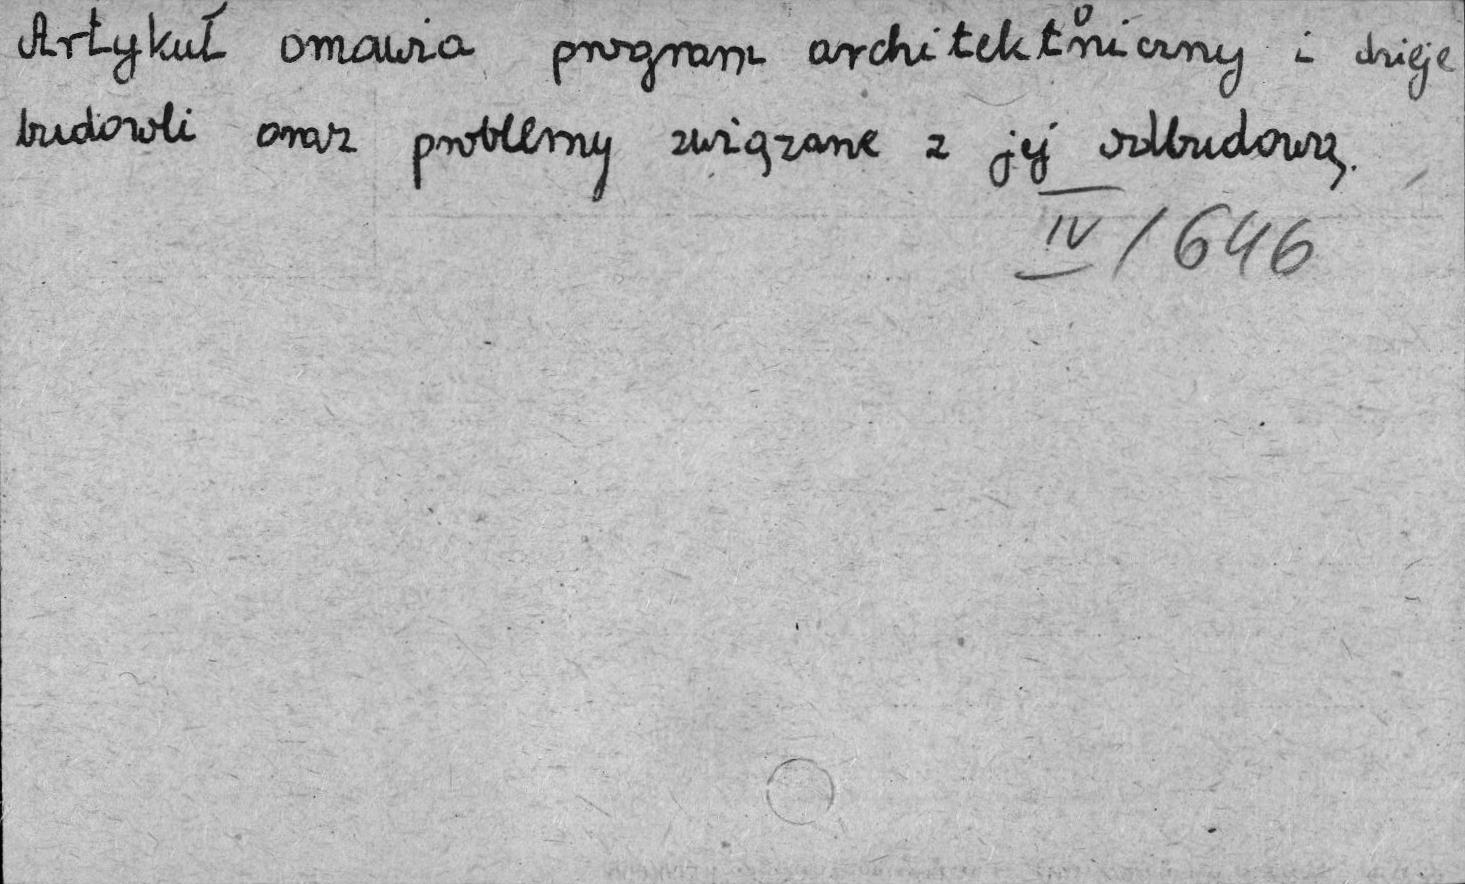 Artykuł omawia program architektoniczny i dzieje
budowli oraz problemy związane z jej odbudową.
IV/646